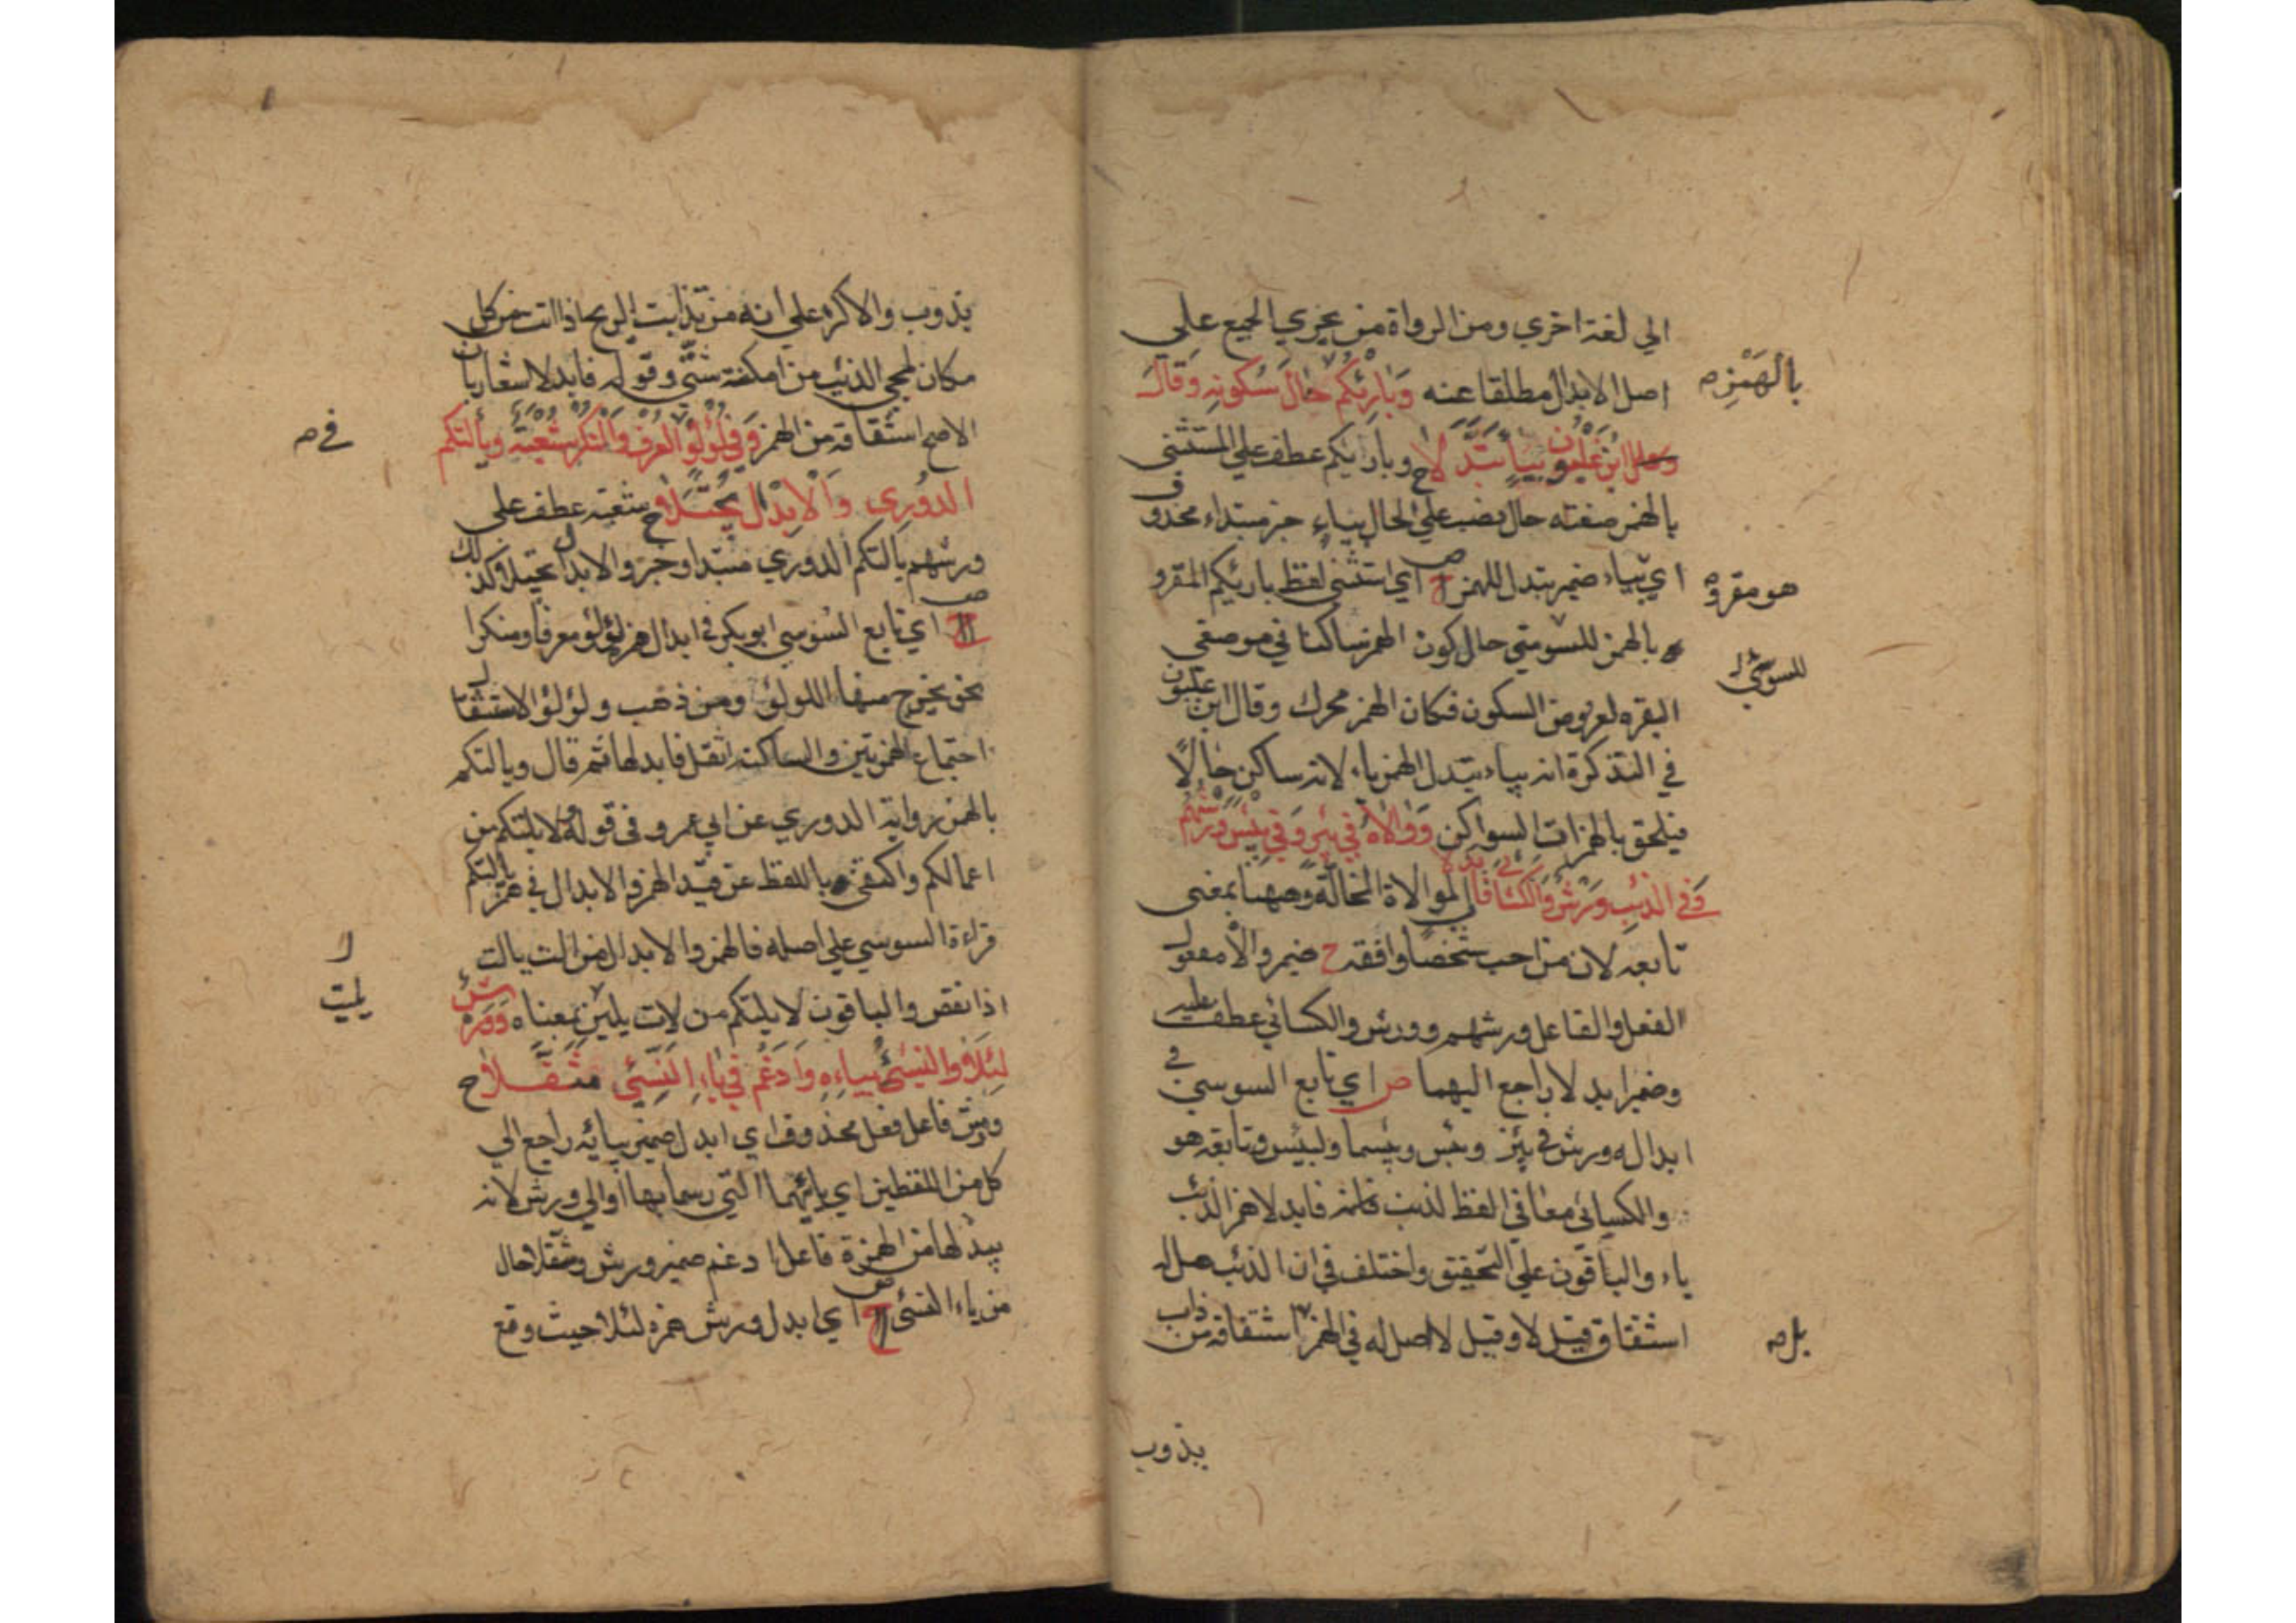 الي لغة اخري ومن الرواة من يجري الجميع علي
اصل الابدال مطلقا عنه وَبَارِئِكُمْ حَالَ سُكُونِهِ وَقَالَ
بالهَمْزِ صح
ابن غَلْبُون بِيَاءٍ تَبَدَّلَا ح وبارئكم عطف علي المستثني
بالهمز صفته حال نصب علي الحال بياء خبر مبتداء محذوف
اي بياء ضمير تبدل للهمز ص اي استثني لفظ بارئكم المقرو
هو مقروه
بالهمز للسوسي حال كون الهمز ساكنا في موضعي
للسوسي
البقره لعروض السكون فكان الهمز محرك وقال ابن غلبون
في التذكرة انه بياء تبدل الهمز ياء لانه ساكن حالًا
فيلحق بالهمزات السواكن وَوَالَاهُ فِي بِئْرٍ وَفِي بِئْسَ وَرْشُهُمْ
وَفي الذئب وَرْشٌ وَالكسَائي فَأبْدَلا الموالاة المخالّة وههنا بمعني
تابعه لان من احب شخصًا وافقه ح ضمير والاه مفعول
الفعل والفاعل ورشهم وورش والكسائي عطف عليه
وضمير ابدلا راجع اليهما ص اي تابع السوسي في
ابداله ورش في بئر وبئس وبئسما ولبئس وتابعه هو
والكسائي معا في لفظ الذئب فابدلا همز الذئب
ياء والباقون علي التحقيق واختلف في ان الذئب هل له
اشتقاق قيل لا وقيل لا اصل له في الهمز اشتقاقه من ذاب
بل صح
يذوب
يذوب والاكثر علي انه من تذابت الريح اذا اتت من كل
مكان لمجي الذئب من امكنة شتّي وقوله فابدلا اشعار بان
الاصح اشتقاقه من الهمز وَفِي لُؤْلُؤٍ في العُرْفِ وَالنُّكْرِ شُعْبَةٌ ويألتكم
في صح
الدُّوْرِي وَالْاِبْدَالُ يُجْتَلَا ح شعبه عطف علي
ورشهم يالتكم الدوري مبتدا وخبر والابدال يجتلا كذلك
ص اي تابع السوسي ابو بكر في ابدال همز لؤلؤ معرفا ومنكرا
نحو يخرج منهما اللولؤ ومن ذهب ولؤلؤ الاستثقال
اجتماع الهمزتين والساكنة اثقل فابدلها ثم قال ويالتكم
بالهمز رواية الدوري عن ابي عمرو في قوله لا يلتكم من
اعمالكم واكتفي باللفظ عن قيد الهمز والابدال في همز يالتكم
قراءة السوسي علي اصله فالهمز والابدال من الت يالت
اذا نقص والباقون لا يلتكم من لات يليت بمعناه وَوَرْشٌ
يليت
لِئَلَّا وَالنَّسِيْئُ بِيَاءِهِ وَاَدْغَمَ فِي يَاءِ النَّسِيْئِ فَثَقَّلَا ح
ورش فاعل فعل محذوف اي ابدل ضمير بيائه راجع الي
كل من اللفظين اي يائهما التي رسما بها او الي ورش لانه
يبدلها من الهمزة فاعل ادغم ضمير ورش وثقلا حال
من ياء النسئ ص اي ابدل ورش همزه لئلا حيث وقع